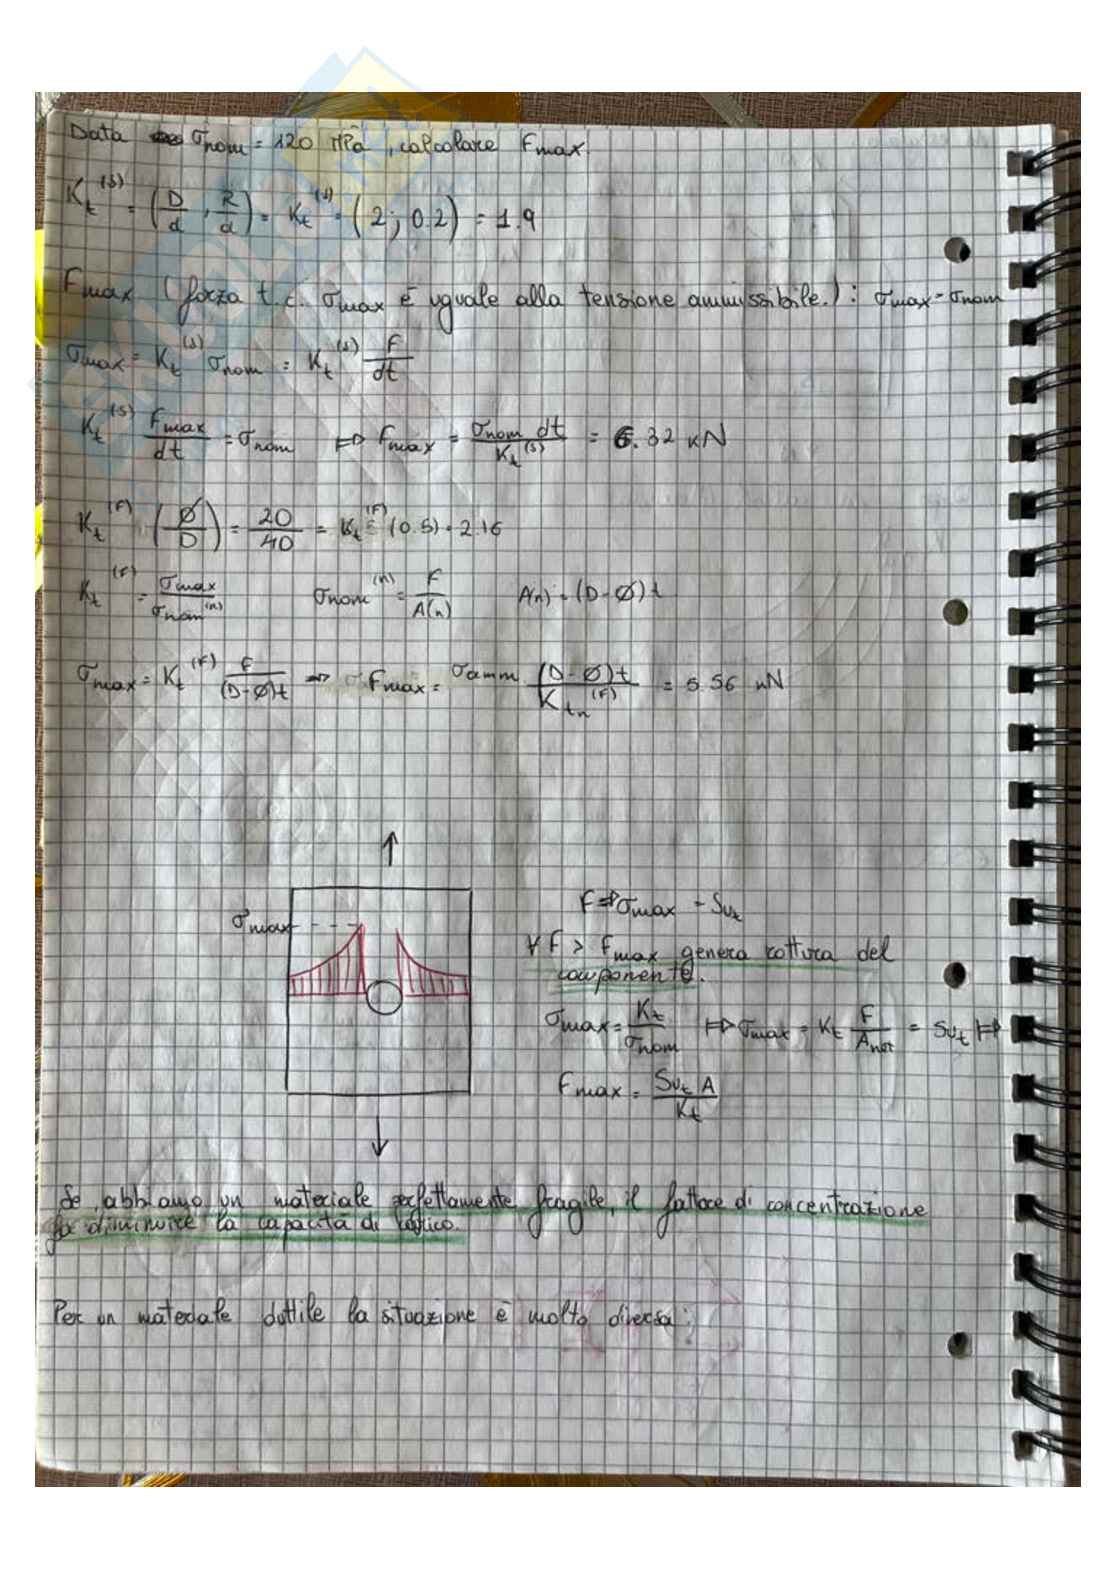 Data σnom = 120 MPa, calcolare Fmax.
Kt(s) = (D/d, R/d) = Kt(s) = (2; 0.2) = 1.9
Fmax (forza t.c. σmax è uguale alla tensione ammissibile.): σmax = σnom
σmax = Kt(s) σnom = Kt(s) F/dt
Kt(s) Fmax/dt = σnom ⇒ Fmax = σnom dt/Kt(s) = 6.32 kN
Kt(F) (Ø/D) = 20/40 = Kt(F) (0.5) = 2.16
Kt(F) = σmax/σnom(n) σnom(n) = F/A(n) A(n) = (D-Ø)t
σmax = Kt(F) F/(D-Ø)t ⇒ Fmax = σamm (D-Ø)t/Ktn(F) = 5.56 kN
σmax
F ⇒ σmax = Sut
∀ F > Fmax genera rottura del
componente.
σmax = Kt/σnom ⇒ σmax = Kt F/Anet = Sut ⇒
Fmax = Sut A/Kt
Se abbiamo un materiale perfettamente fragile, il fattore di concentrazione
fa diminuire la capacità di carico.
Per un materiale duttile la situazione è molto diversa: